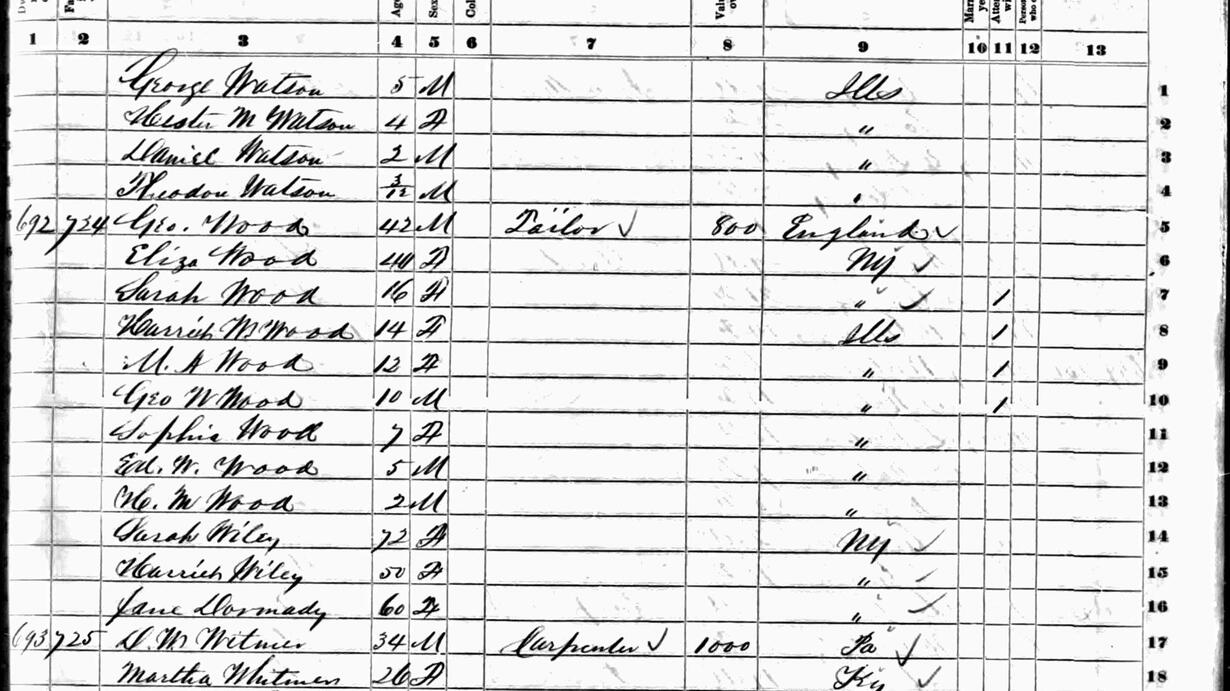 Age Sex
1 2 3 4 5 6 7 8 9 10 11 12 13
George Watson 5 M Ills 1
Hester M Watson 4 F " 2
Daniel Watson 2 M " 3
Theodore Watson 3/12 M " 4
692 724 Geo. Wood 42 M Tailor ✓ 800 England ✓ 5
Eliza Wood F NY ✓ 6
Sarah Wood 16 F " ✓ 1 7
Harriet M Wood 14 F Ills 1 8
M. A Wood 12 F " 1 9
Geo W Wood 10 M " 1 10
Sophia Wood 7 F " 11
Ed. W. Wood 5 M " 12
H. M Wood 2 M " 13
Sarah Wiley 72 F NY ✓ 14
Harriet Wiley 50 F " ✓ 15
Jane Dormady 60 F " ✓ 16
693 725 D. W. Witmer 34 M Carpenter ✓ 1000 Pa ✓ 17
Martha Whitmer 26 F Ky ✓ 18